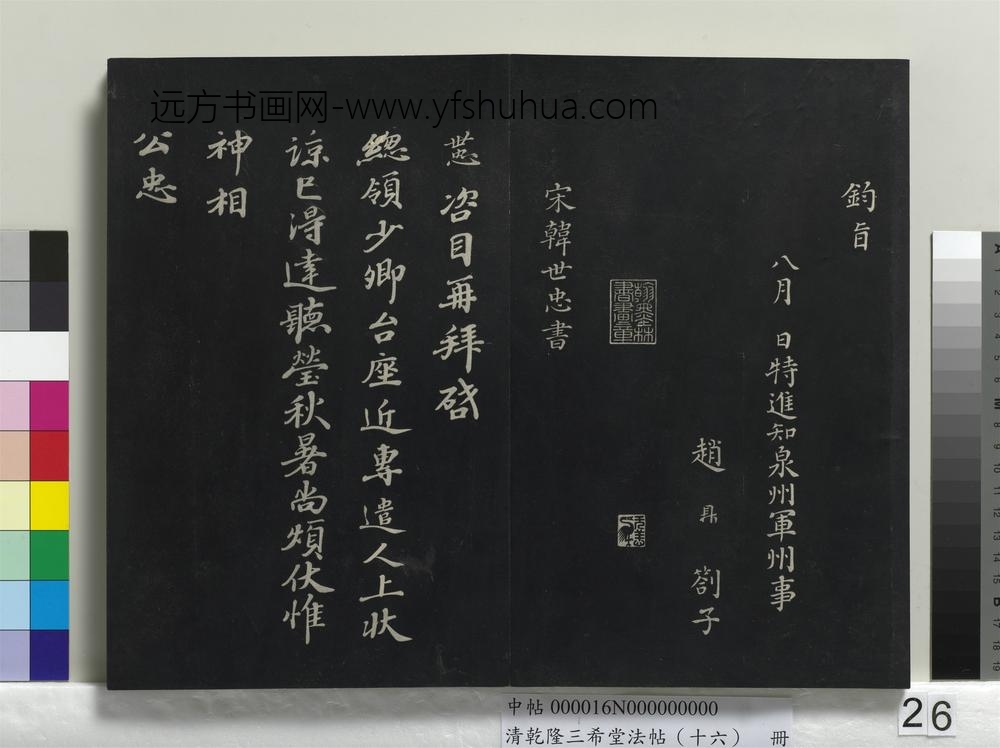 远方书画网-www.yfshuhua.com
鈞旨
八月 日特進知泉州軍州事
趙鼎劄子
宋韓世忠書
翰墨林書畫章
世忠 咨目再拜啓
總領少卿台座近專遣人上狀
諒已得達聽瑩秋暑尚煩伏惟
神相
公忠
中帖 000016N000000000
清乾隆三希堂法帖（十六） 冊
26